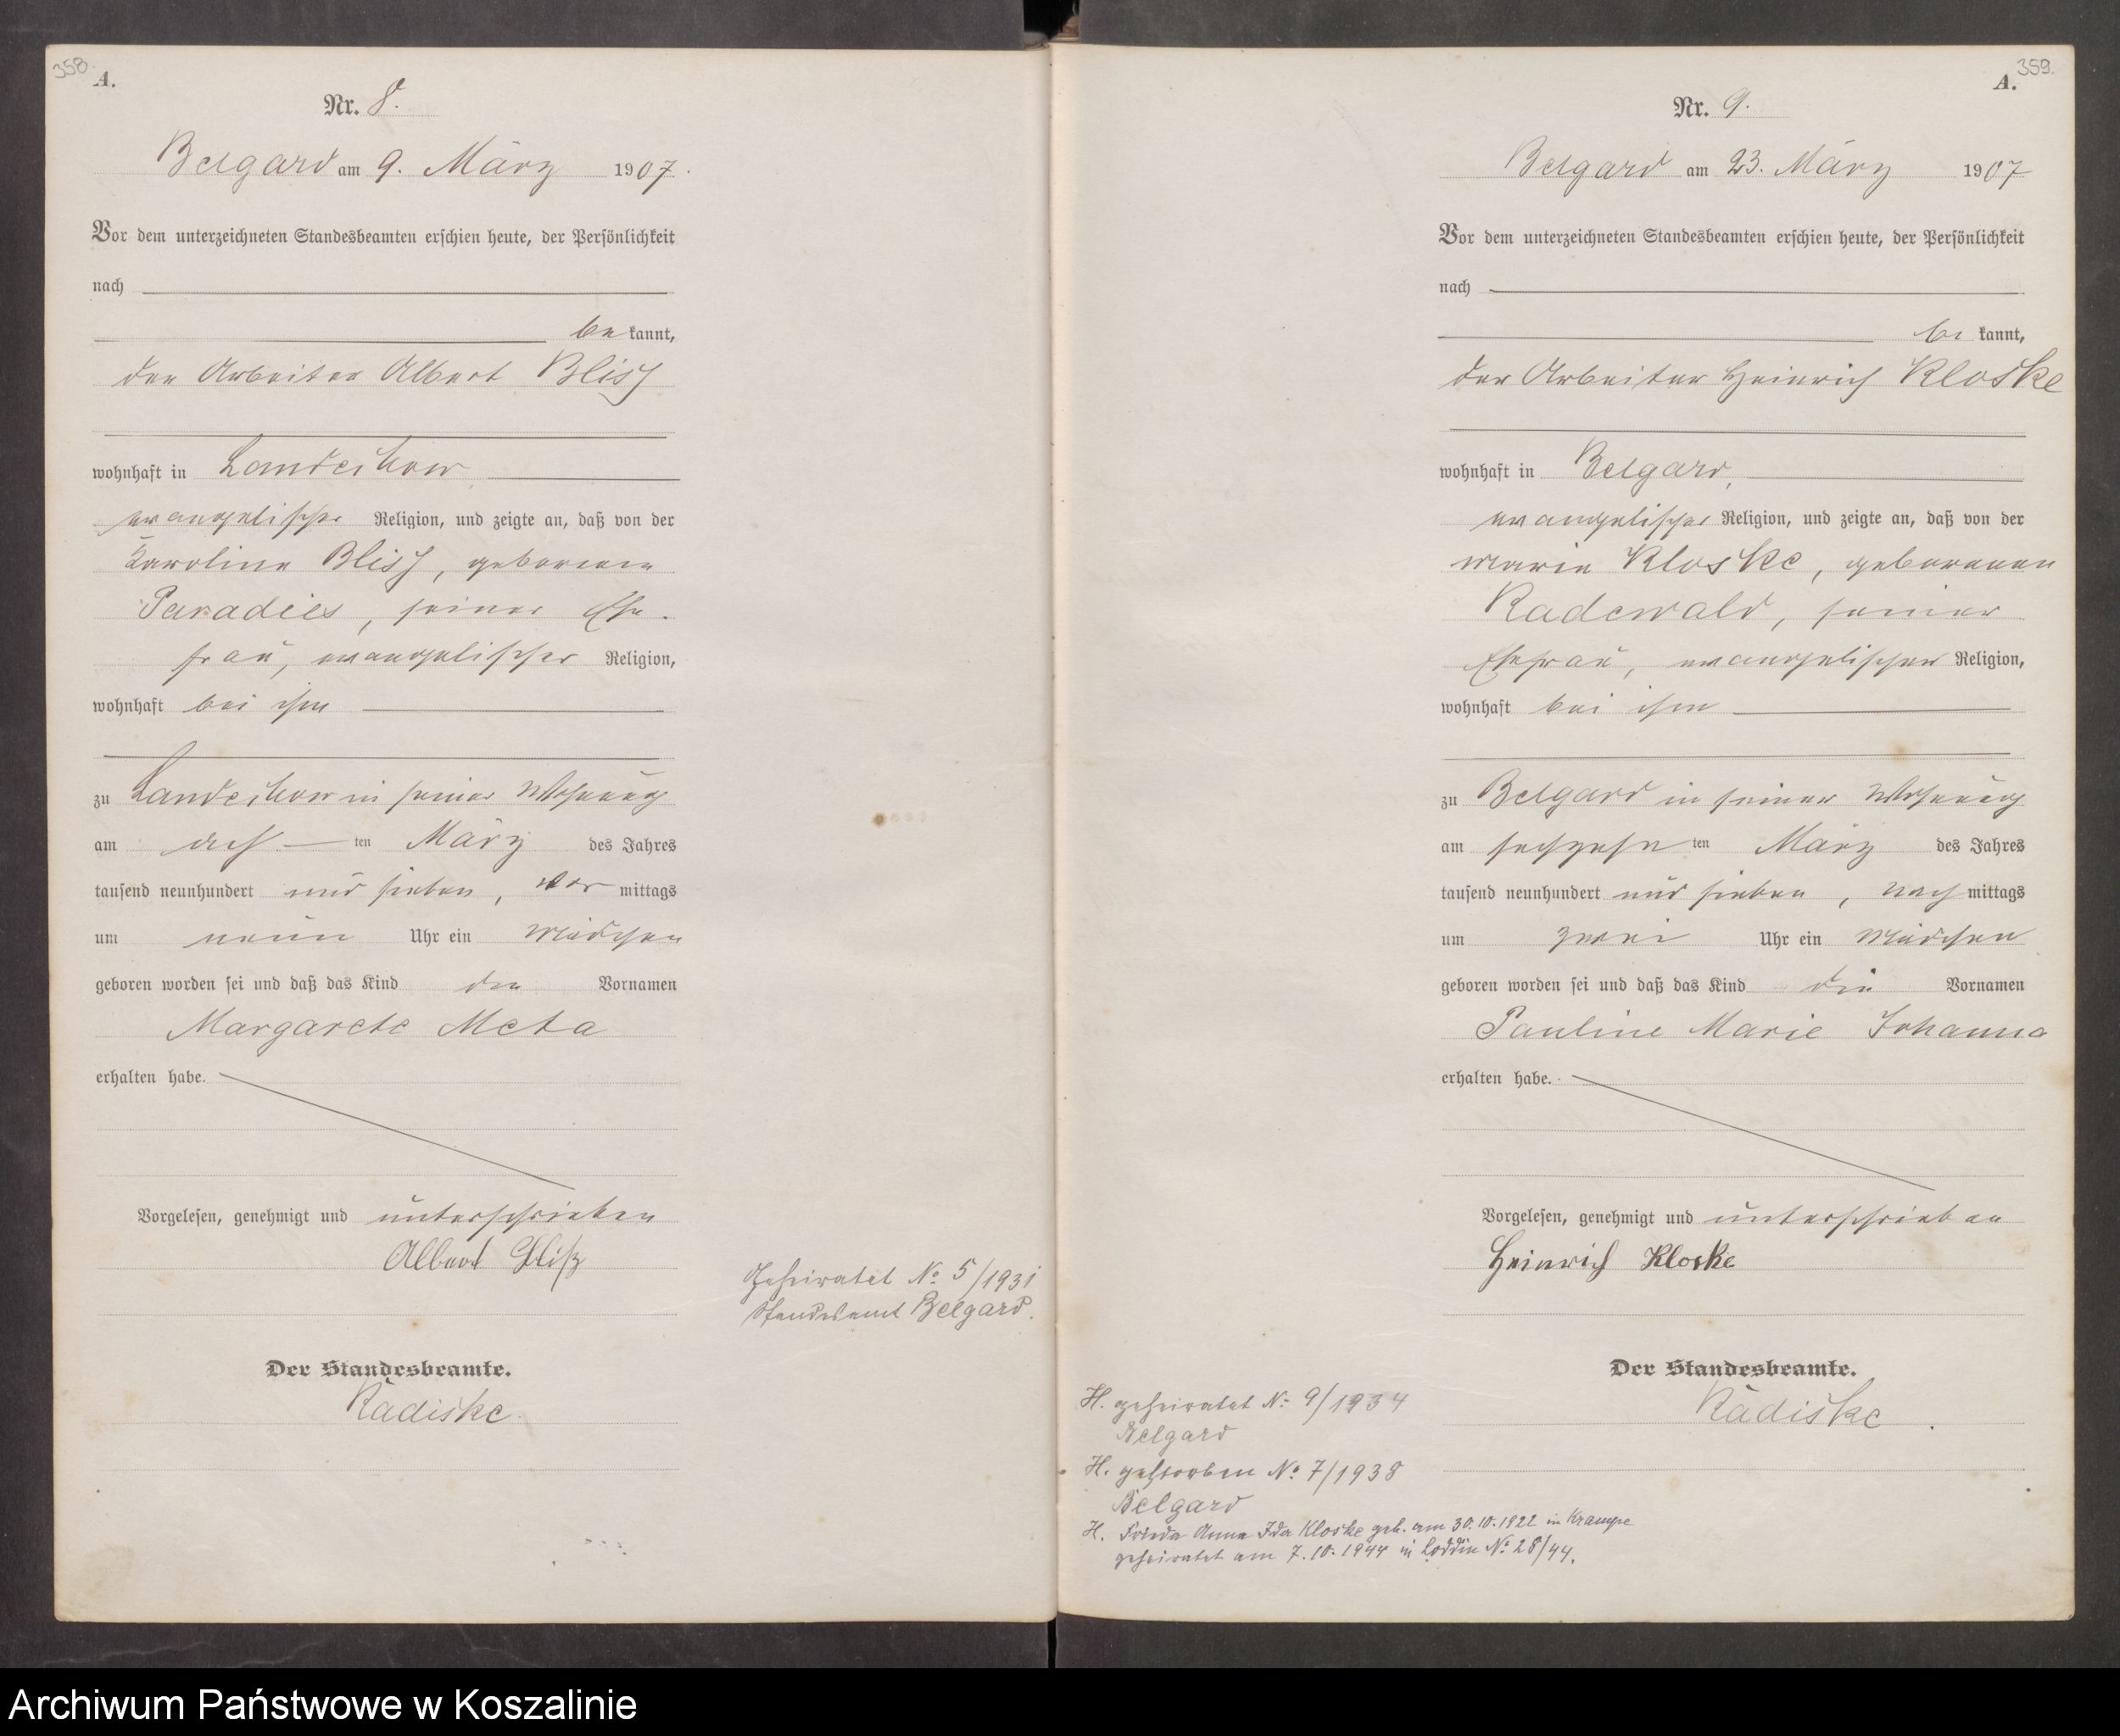 358.
A.
Nr. 8.
Belgard am 9. März 1907.
Vor dem unterzeichneten Standesbeamten erschien heute, der Persönlichkeit
nach
be kannt,
der Arbeiter Albert Bliss
wohnhaft in Landechow
evangelischer Religion, und zeigte an, daß von der
Karoline Bliss, geborenen
Paradies, seiner Ehe-
frau, evangelischer Religion,
wohnhaft bei ihm
zu Landechow in seiner Wohnung
am acht ten März des Jahres
tausend neunhundert und sieben, vor mittags
um neun Uhr ein Mädchen
geboren worden sei und daß das Kind die Vornamen
Margarete Meta
erhalten habe.
Vorgelesen, genehmigt und unterschrieben
Albert Bliß
Der Standesbeamte.
Radiske.
Geheiratet No 5/1931
Standesamt Belgard.
359.
A.
Nr. 9.
Belgard am 23. März 1907
Vor dem unterzeichneten Standesbeamten erschien heute, der Persönlichkeit
nach
be kannt,
der Arbeiter Heinrich Kloske
wohnhaft in Belgard,
evangelischer Religion, und zeigte an, daß von der
Marie Kloske, geborenen
Radewald, seiner
Ehefrau, evangelischer Religion,
wohnhaft bei ihm
zu Belgard in seiner Wohnung
am sechzehn ten März des Jahres
tausend neunhundert und sieben, nach mittags
um zwei Uhr ein Mädchen
geboren worden sei und daß das Kind die Vornamen
Pauline Marie Johanna
erhalten habe.
Vorgelesen, genehmigt und unterschrieben
Heinrich Kloske
Der Standesbeamte.
Radiske.
H. geheiratet No 9/1934
Belgard
H. gestorben No 7/1938
Belgard
H. Frieda Anna Ida Kloske geb. am 30.10.1922 in Krampe
geheiratet am 7.10.1944 in Loddin No 28/44.
Archiwum Państwowe w Koszalinie